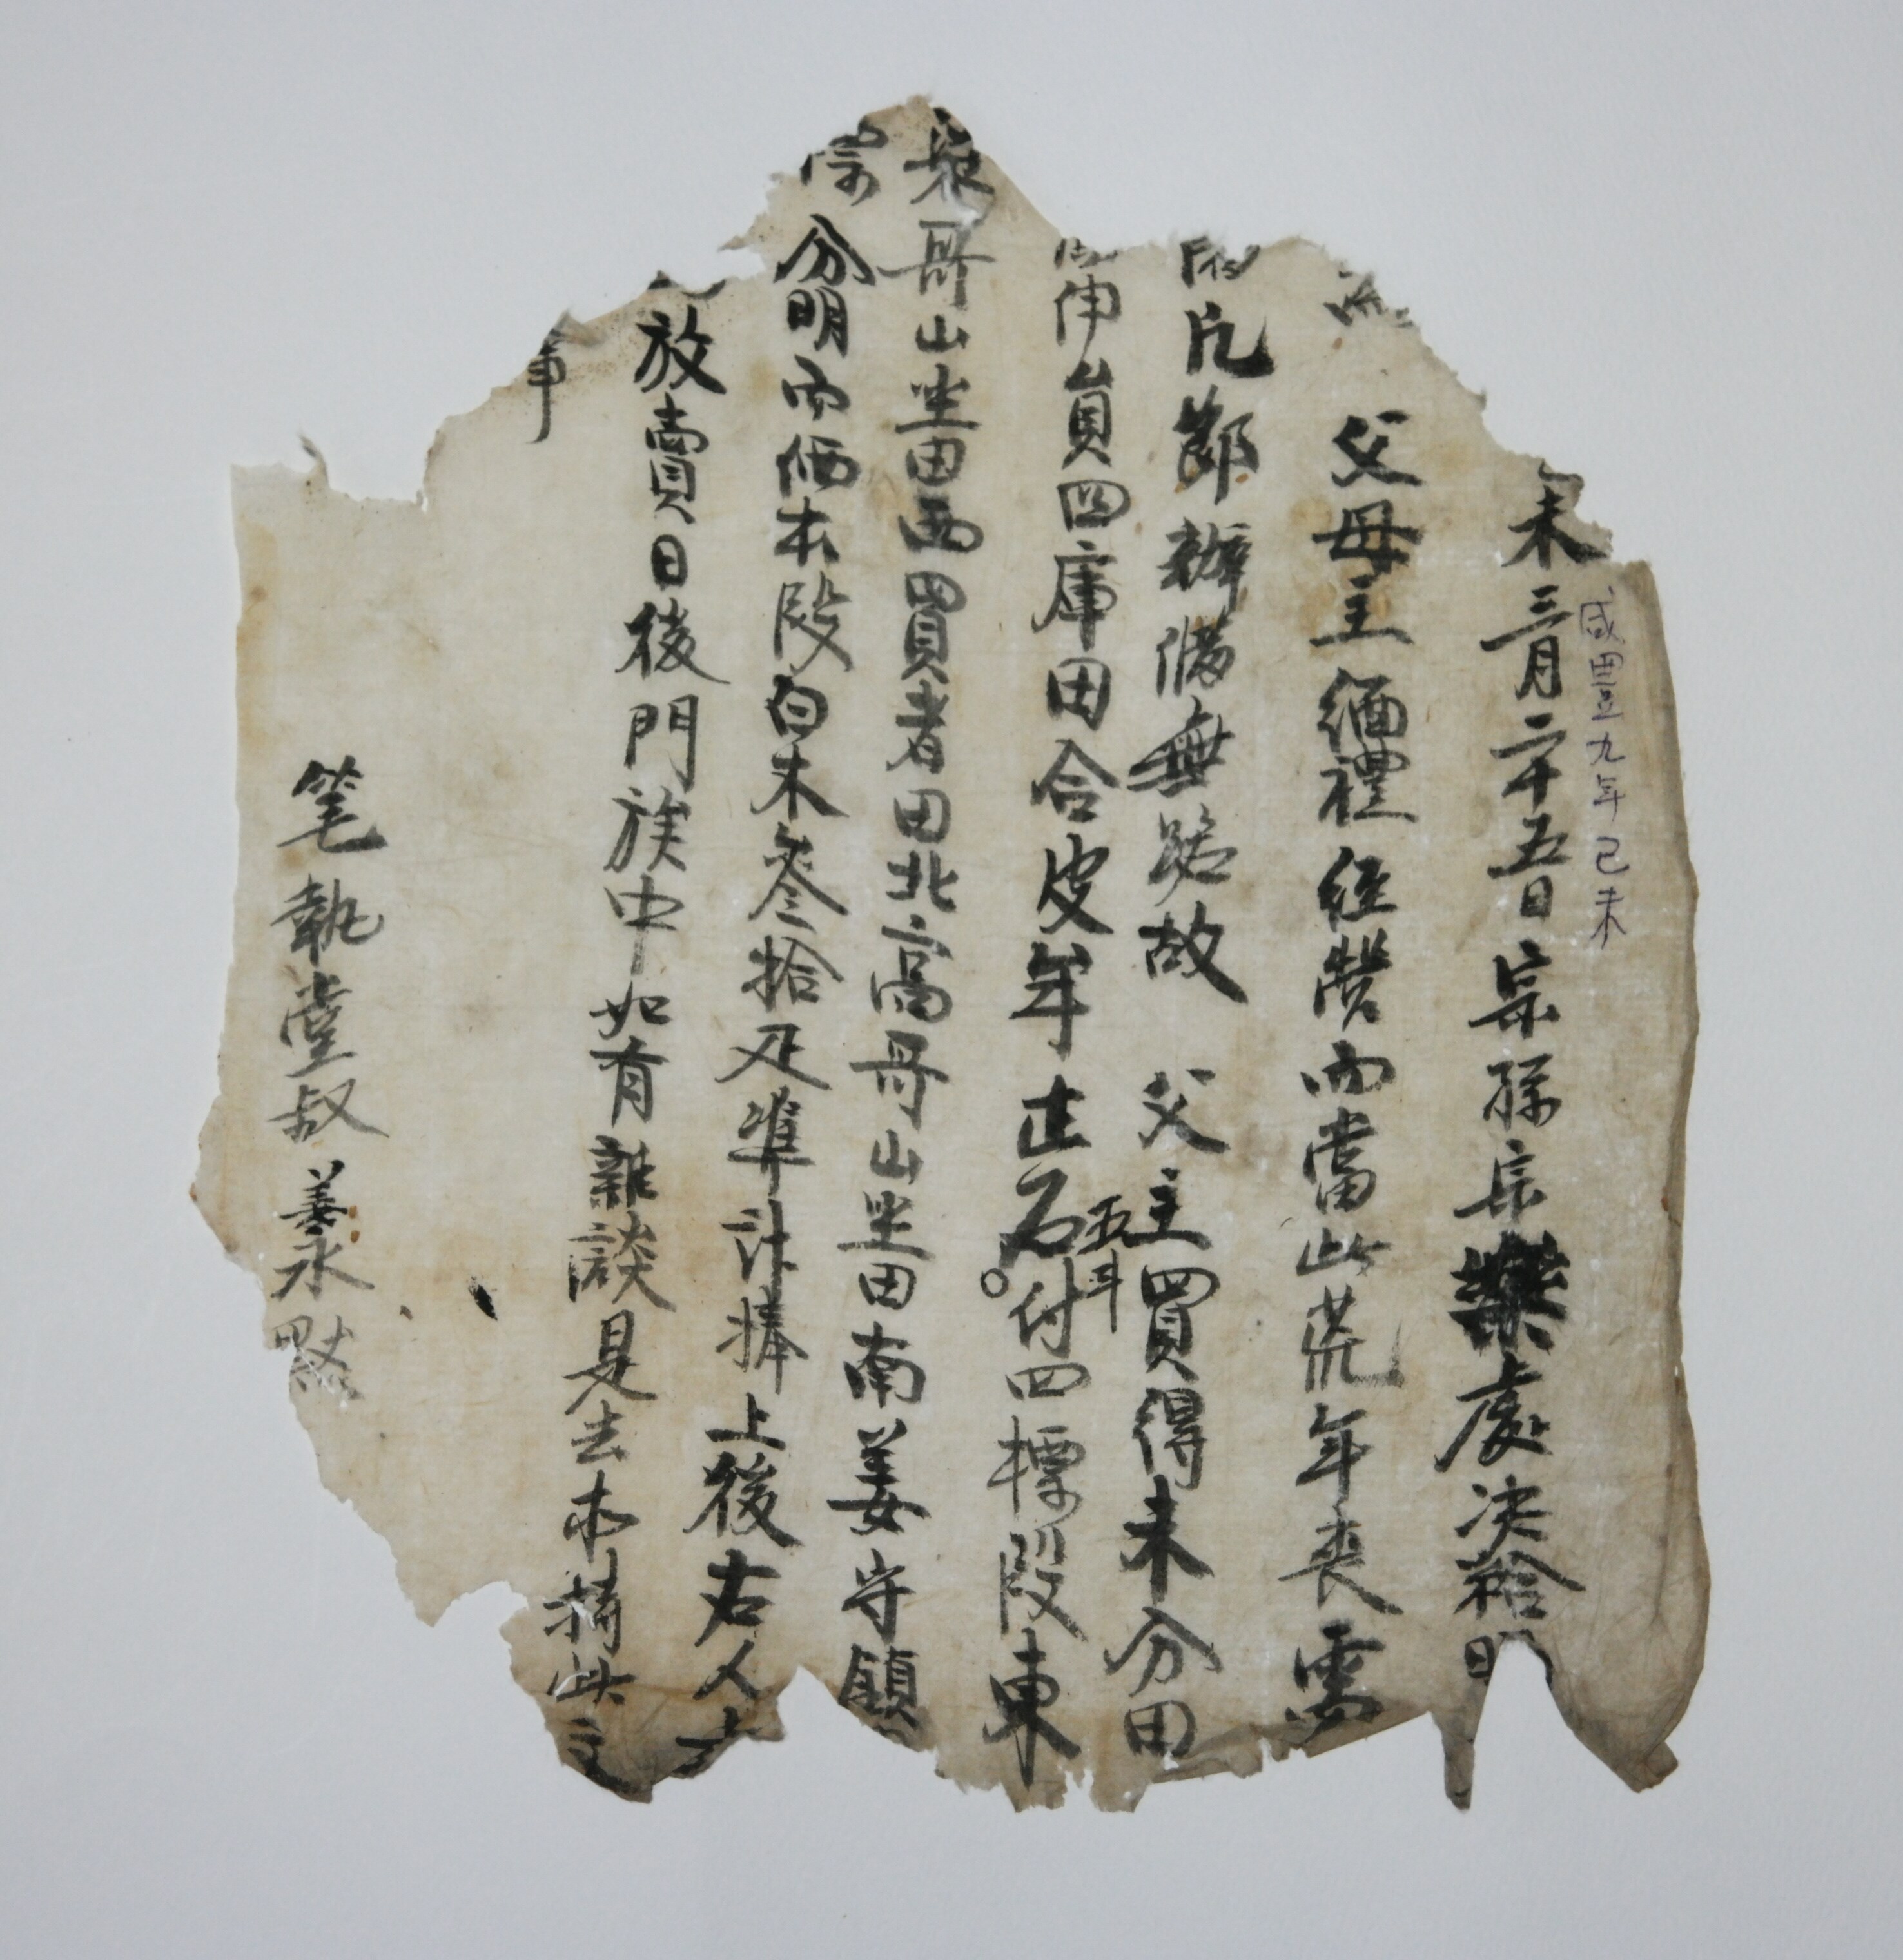 咸豊九年己未
未三月二十五日宗孫宗樂處決給明
父母主緬禮経營而當此荒年喪需
凡節辦備無路故 父主買得未分田
員四庫田合皮牟壯石五斗付四標段東
哥山坐田西買者田北高哥山坐田南姜守鎮
分明而価本段白木叄拾疋準計捧上後右人
放賣日後門族中如有雜談是去木持此文
事
筆執堂叔善永